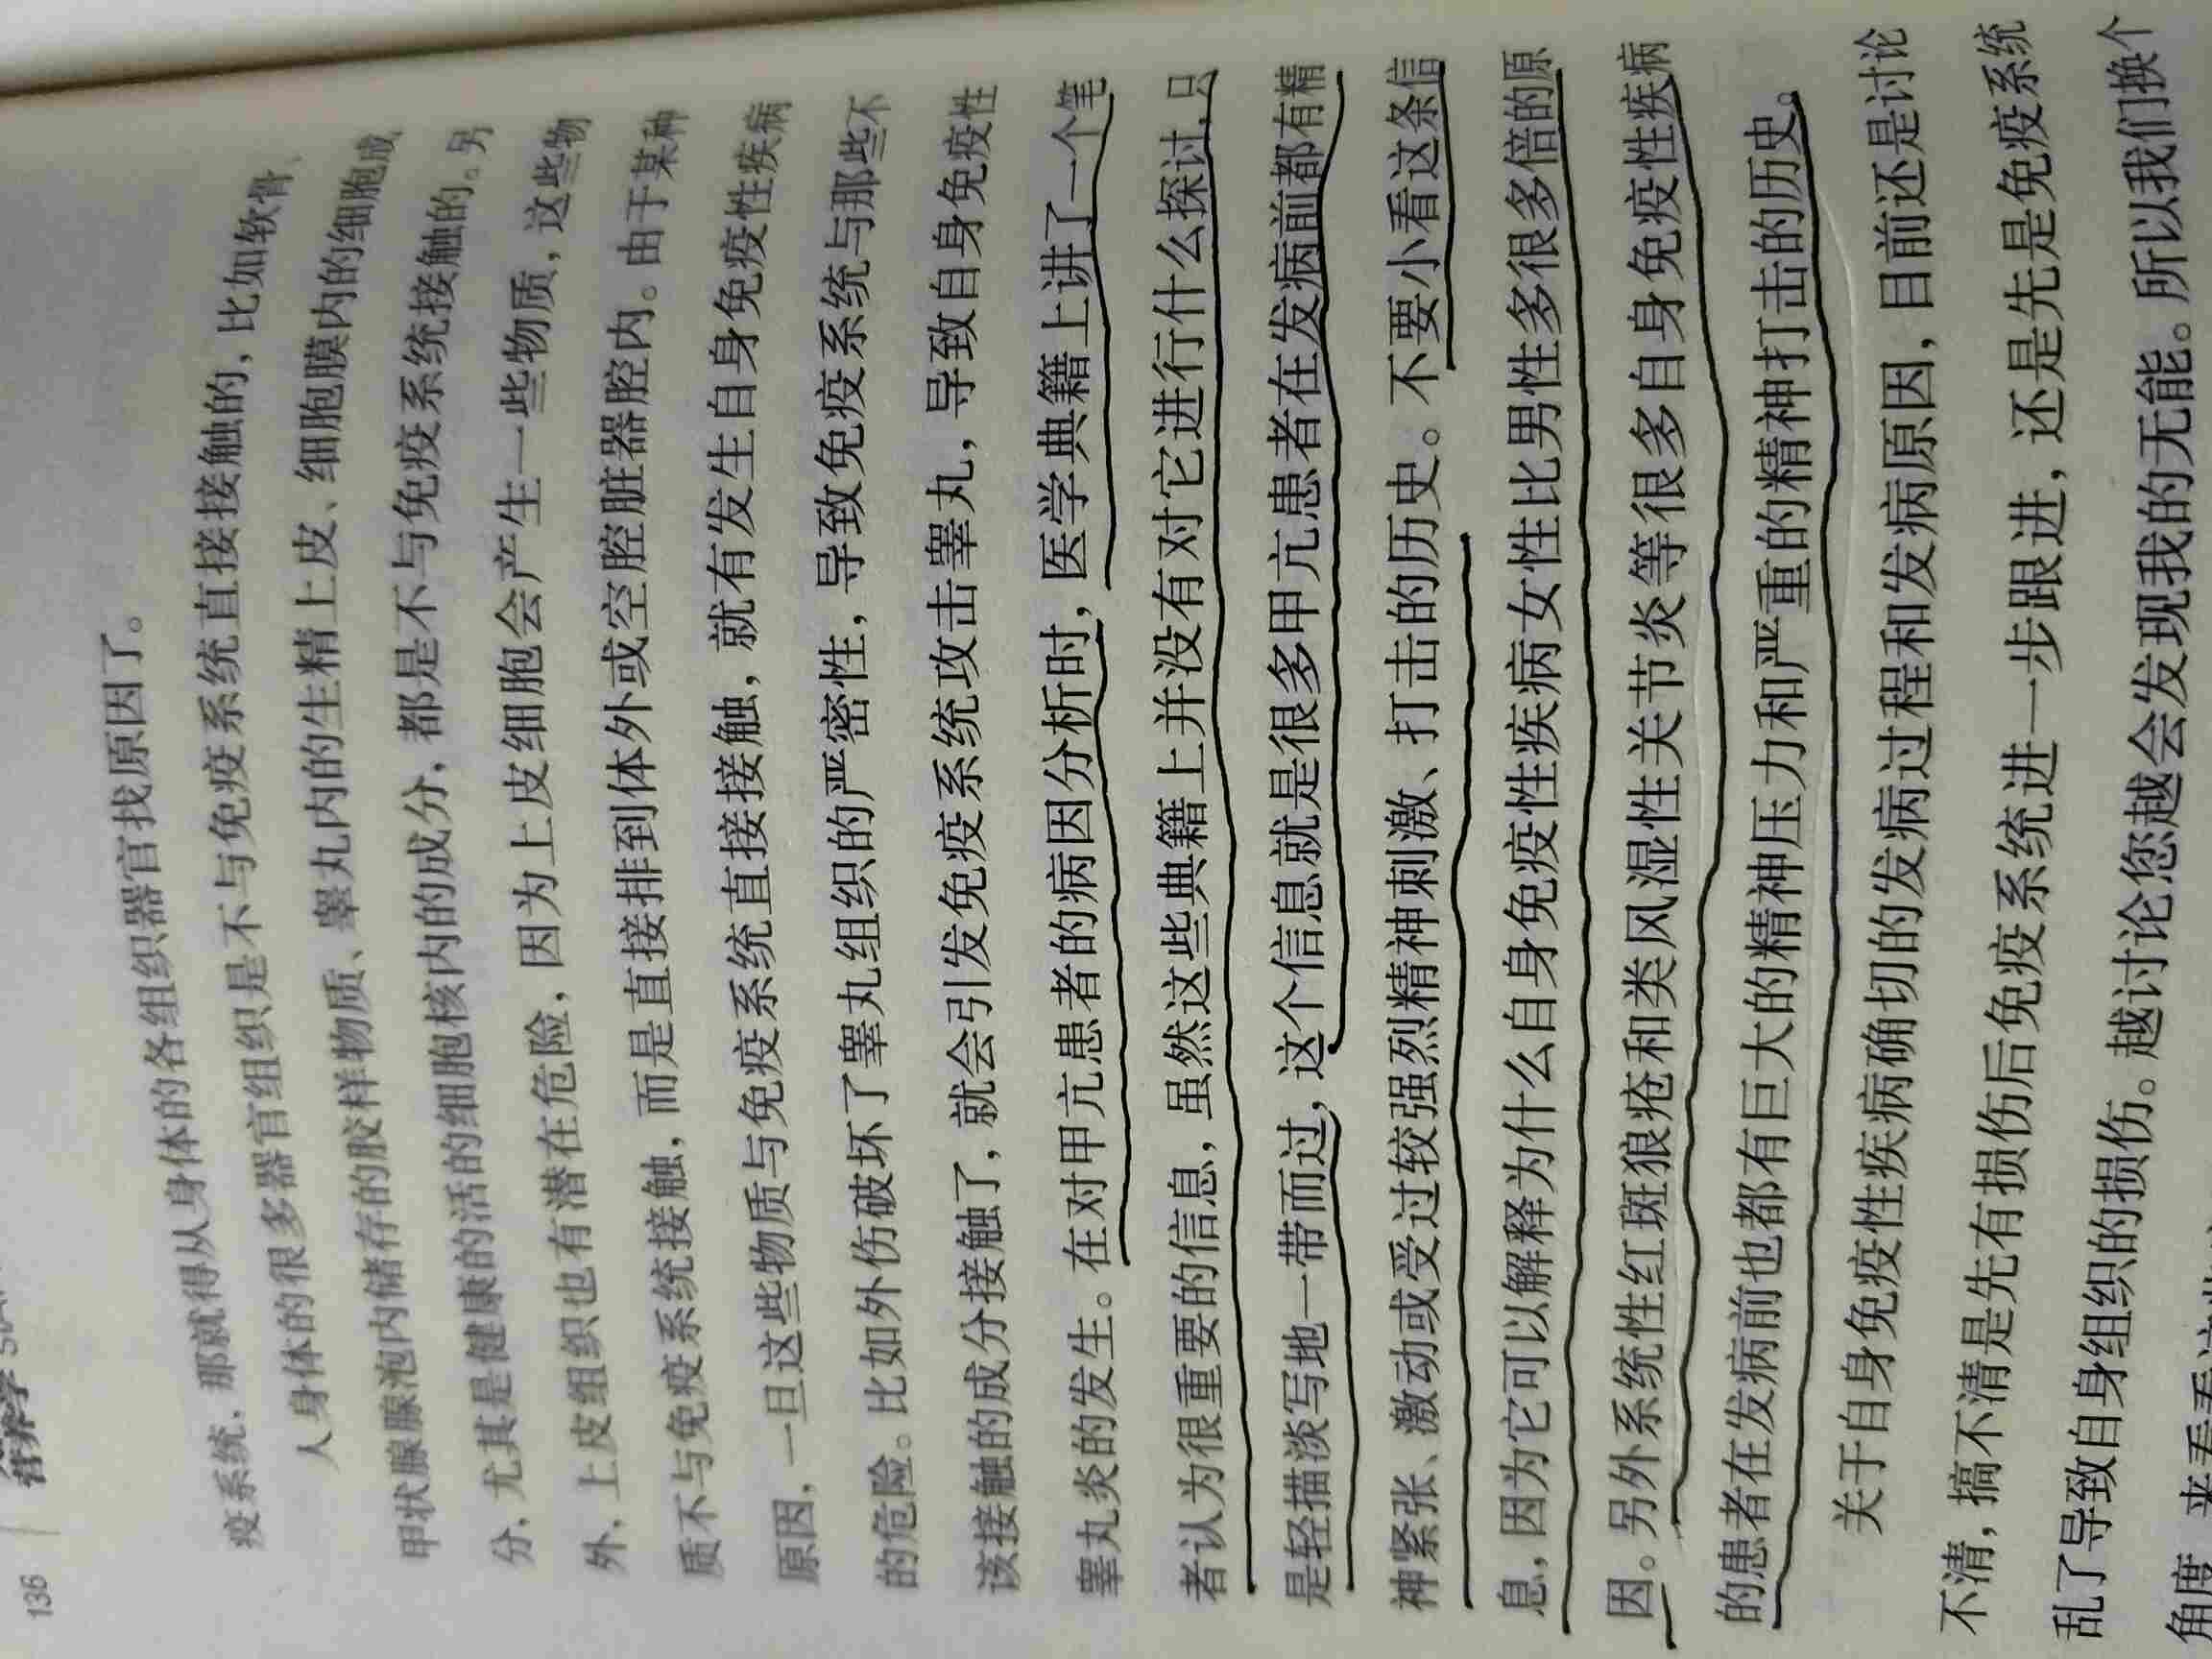 136
营养学
疫系统，那就得从身体的各组织器官找原因了。
人身体的很多器官组织是不与免疫系统直接接触的，比如软骨、
甲状腺腺泡内储存的胶样物质、睾丸内的生精上皮、细胞膜内的细胞成
分，尤其是健康的活的细胞核内的成分，都是不与免疫系统接触的。另
外，上皮组织也有潜在危险，因为上皮细胞会产生一些物质，这些物
质不与免疫系统接触，而是直接排到体外或空腔脏器腔内。由于某种
原因，一旦这些物质与免疫系统直接接触，就有发生自身免疫性疾病
的危险。比如外伤破坏了睾丸组织的严密性，导致免疫系统与那些不
该接触的成分接触了，就会引发免疫系统攻击睾丸，导致自身免疫性
睾丸炎的发生。在对甲亢患者的病因分析时，医学典籍上讲了一个笔
者认为很重要的信息，虽然这些典籍上并没有对它进行什么探讨，只
是轻描淡写地一带而过，这个信息就是很多甲亢患者在发病前都有精
神紧张、激动或受过较强烈精神刺激、打击的历史。不要小看这条信
息，因为它可以解释为什么自身免疫性疾病女性比男性多很多倍的原
因。另外系统性红斑狼疮和类风湿性关节炎等很多自身免疫性疾病
的患者在发病前也都有巨大的精神压力和严重的精神打击的历史。
关于自身免疫性疾病确切的发病过程和发病原因，目前还是讨论
不清，搞不清是先有损伤后免疫系统进一步跟进，还是先是免疫系统
乱了导致自身组织的损伤。越讨论您越会发现我的无能。所以我们换个
角度，来看看